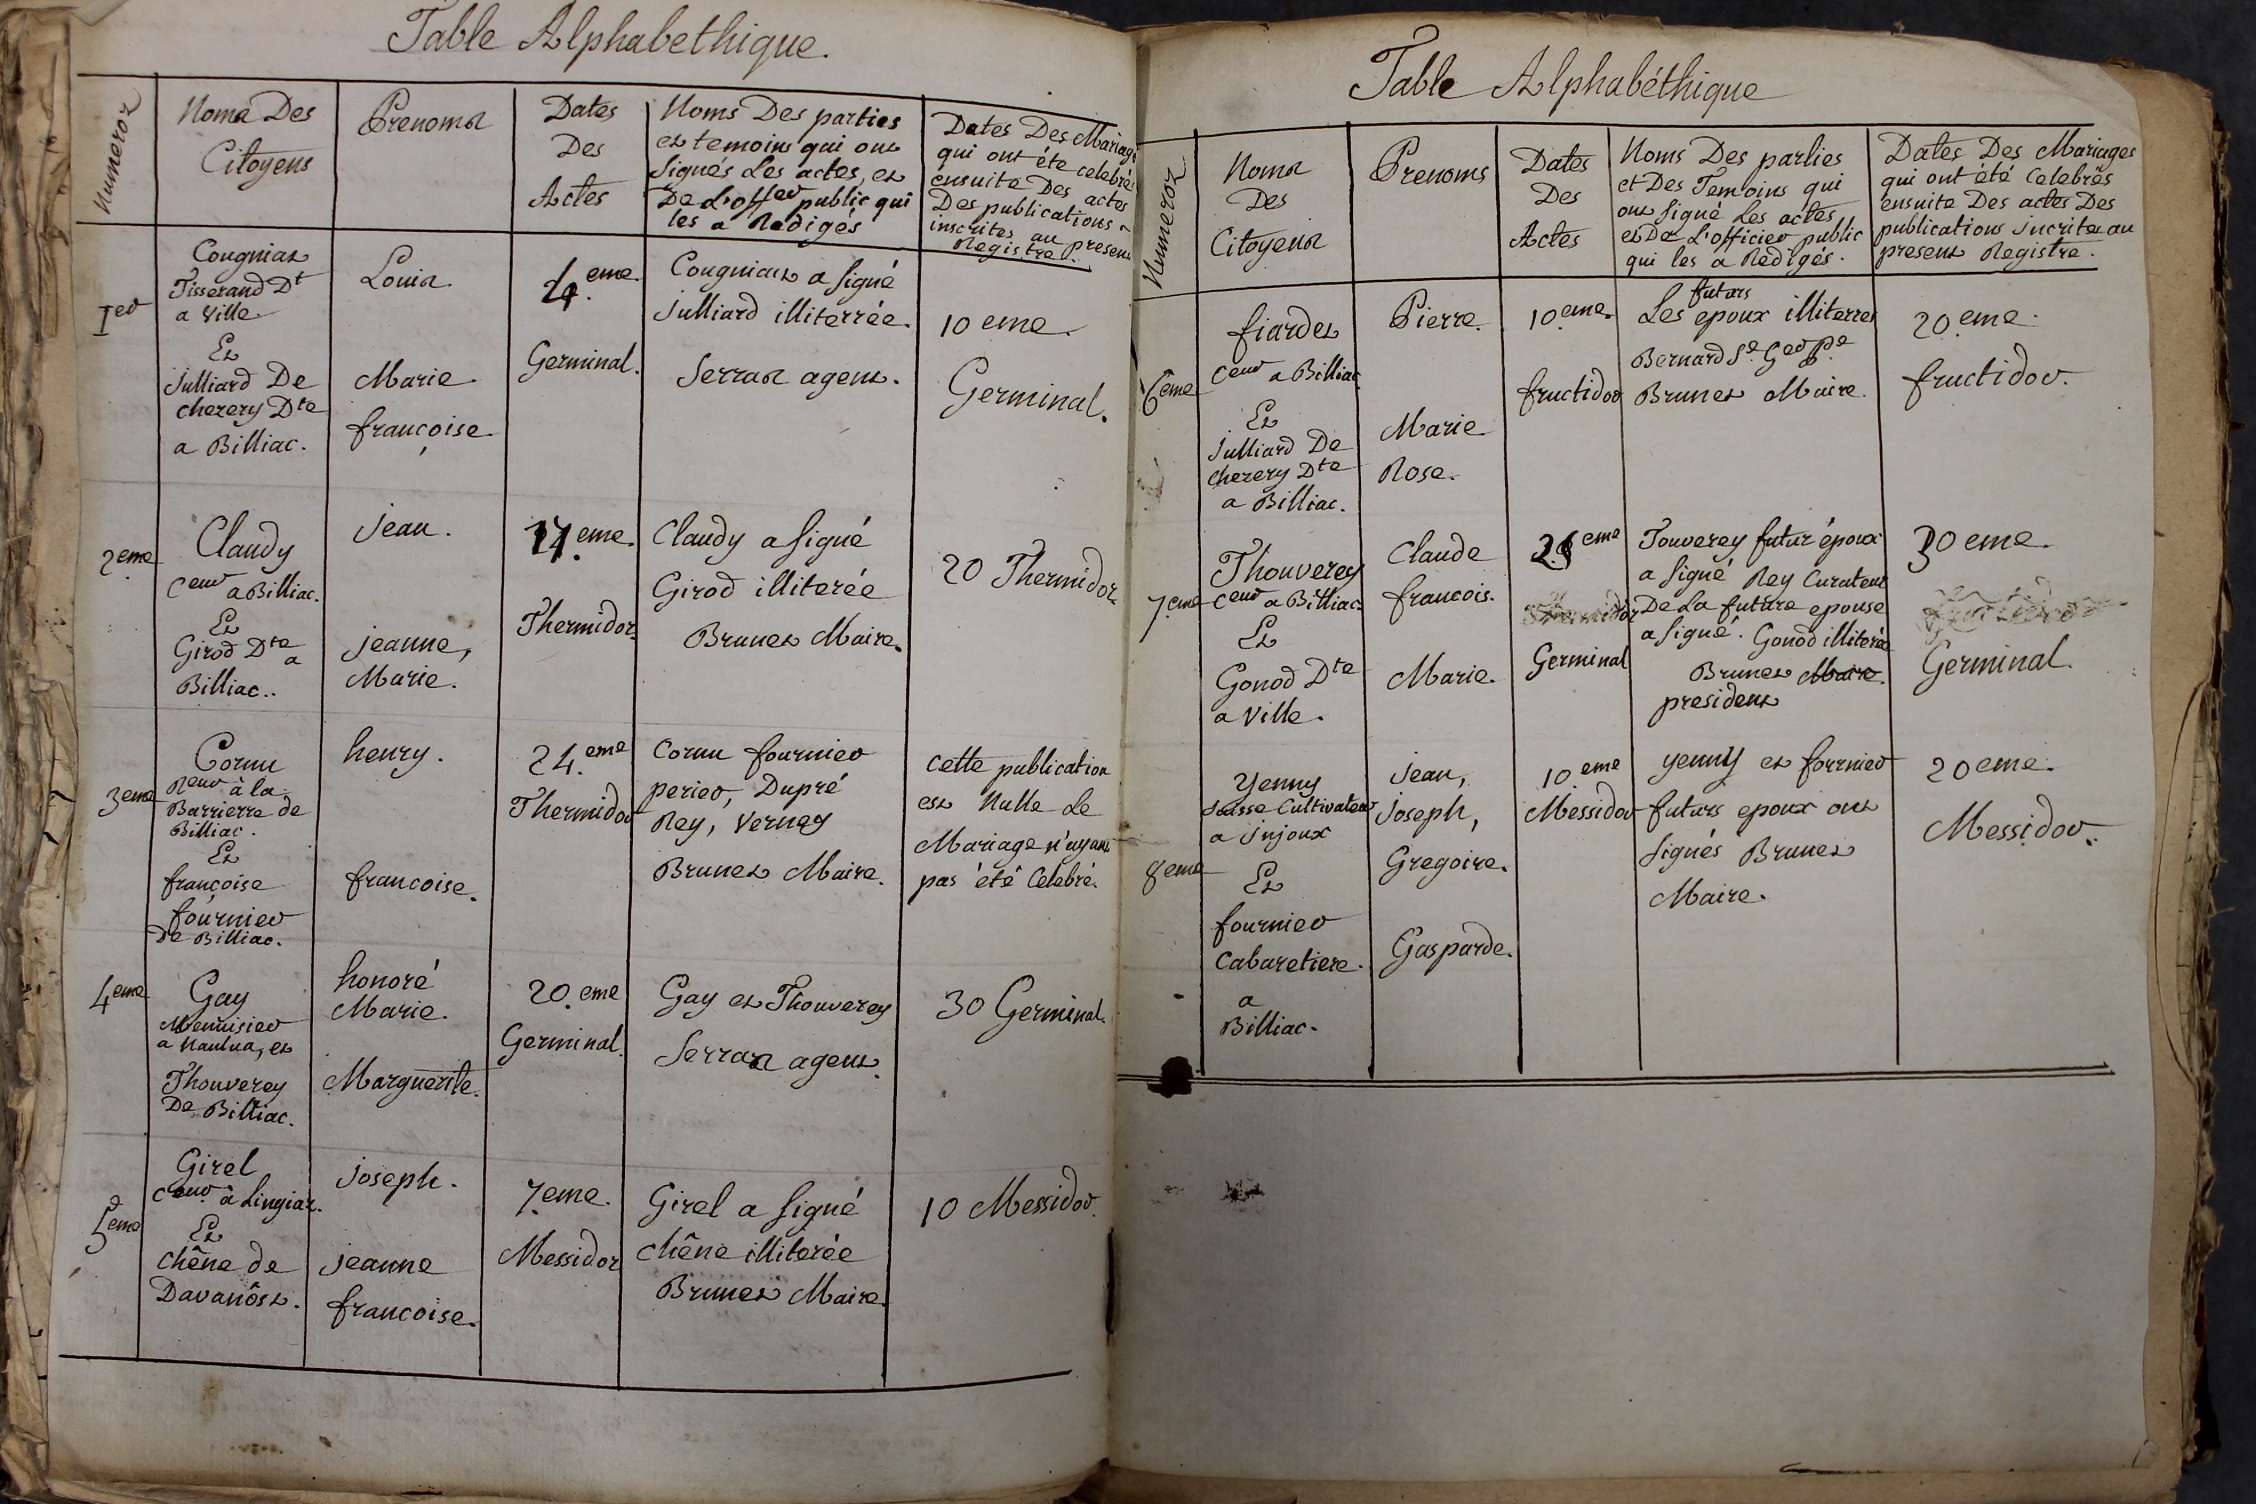 Table Alphabethique.
Numeros
Noms Des
Citoyens
Prenoms
Dates
Des
Actes
Noms Des parties
et temoins qui ont
signés Les actes, et
De L'offer public qui
les a Redigés
Dates Des Mariages
qui ont été celebrés
ensuite Des actes
Des publications
inscrites au present
Registre.
1er
Cougniat
Tisserand Dt
a Ville.
Et
Julliard De
cherery Dte
a Billiac.
Louis.
Marie
françoise.
4.eme
Germinal.
Cougniat a signé
Julliard illiterrée.
Serras agent.
10 eme.
Germinal.
2eme
Claudy
Ceur a Billiac.
Et
Girod Dte
a
Billiac..
Jean.
jeanne,
Marie.
17.eme.
Thermidor.
Claudy a signé
Girod illiterée
Brunet Maire.
20 Thermidor.
3eme
Cornu
Reur à la
Barrierre de
Billiac.
Et
françoise
fournier
De Billiac.
henry.
francoise.
24.eme
Thermidor
Cornu fournier
perier, Dupré
Rey, Verney
Brunet Maire.
cette publication
est Nulle Le
Mariage n'ayant
pas été Celebré.
4eme
Gay
Menuisier
a Nantua, et
Thouverey
De Billiac.
honoré
Marie.
Marguerite.
20.eme
Germinal.
Gay et Thouverey
Serras agent.
30 Germinal.
5eme
Girel
Ceur à Lingiaz.
Et
Chêne de
Davanôst.
Joseph.
jeanne
francoise.
7.eme.
Messidor
Girel a signé
Chêne illiterée
Brunet Maire.
10 Messidor.
Table Alphabéthique
Numeros
Noms
Des
Citoyens
Prenoms
Dates
Des
Actes
Noms Des parties
et Des Temoins qui
ont signé Les actes
et De L'officier public
qui les a Redigés.
Dates Des Mariages
qui ont été Celebrés
ensuite Des actes Des
publications inscrites au
present Registre.
6eme
fiardet
Ceur a Billiac
Et
Julliard De
cherery Dte
a Billiac.
Pierre.
Marie
Rose.
10.eme.
fructidor
futurs
Les epoux illiterres
Bernard Se Ger Pe
Brunet Maire.
20.eme.
fructidor.
7.eme
Thouverey
Ceur a Billiac
Et
Gonod Dte
a Ville.
Claude
francois.
Marie.
eme
Thermidor
Germinal
Touverey futur époux
a signé Rey Curateur
De La future epouse
a signé. Gonod illiterée
Brunet Maire.
president
30 eme.
Germinal.
8eme
Yenny
Suisse Cultivateur
a Injoux
Et
fournier
Cabaretiere.
a
Billiac.
Jean,
Joseph,
Gregoire.
Gasparde.
10.eme
Messidor
yenny et fournier
futurs epoux ont
signés Brunet
Maire.
20 eme.
Messidor.